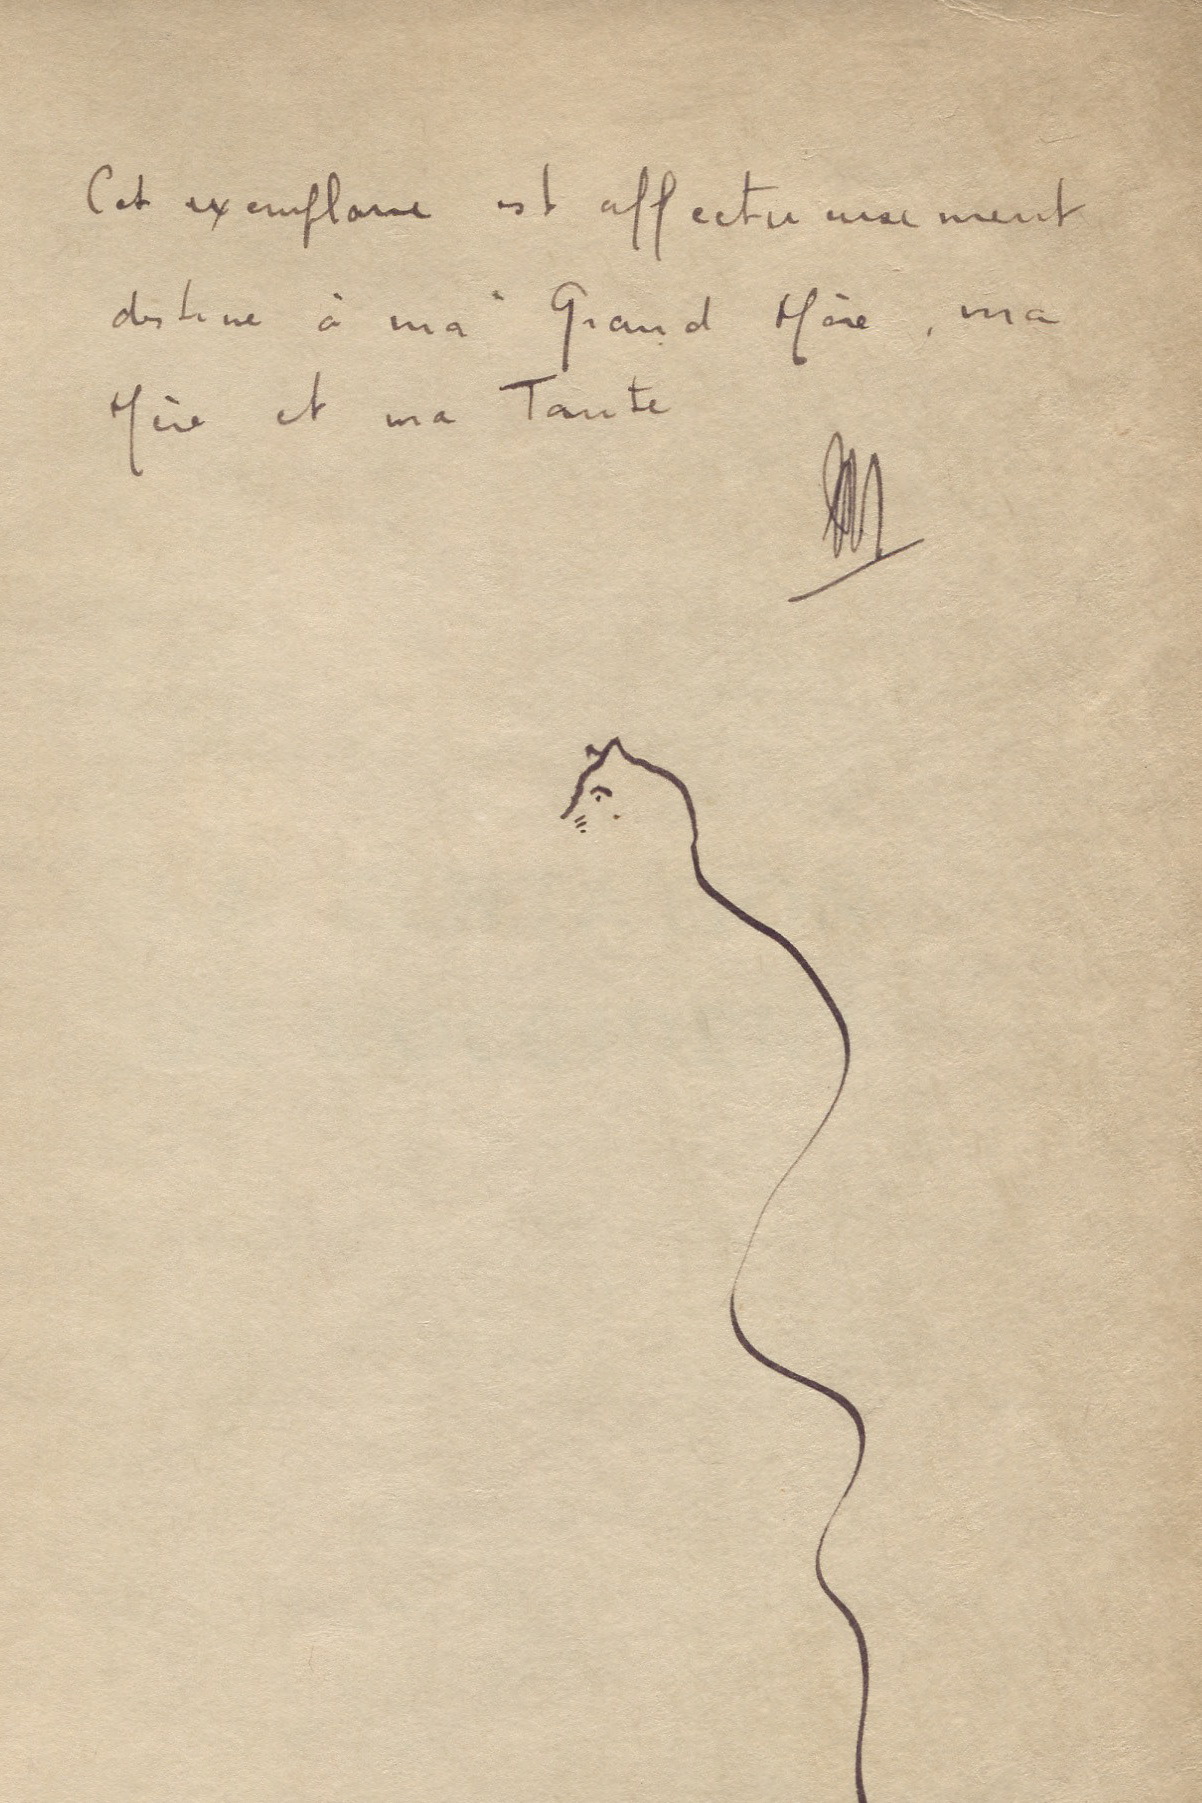 Cet exemplaire est affectueusement
destiné à ma Grand Mère, ma
Mère et ma Tante